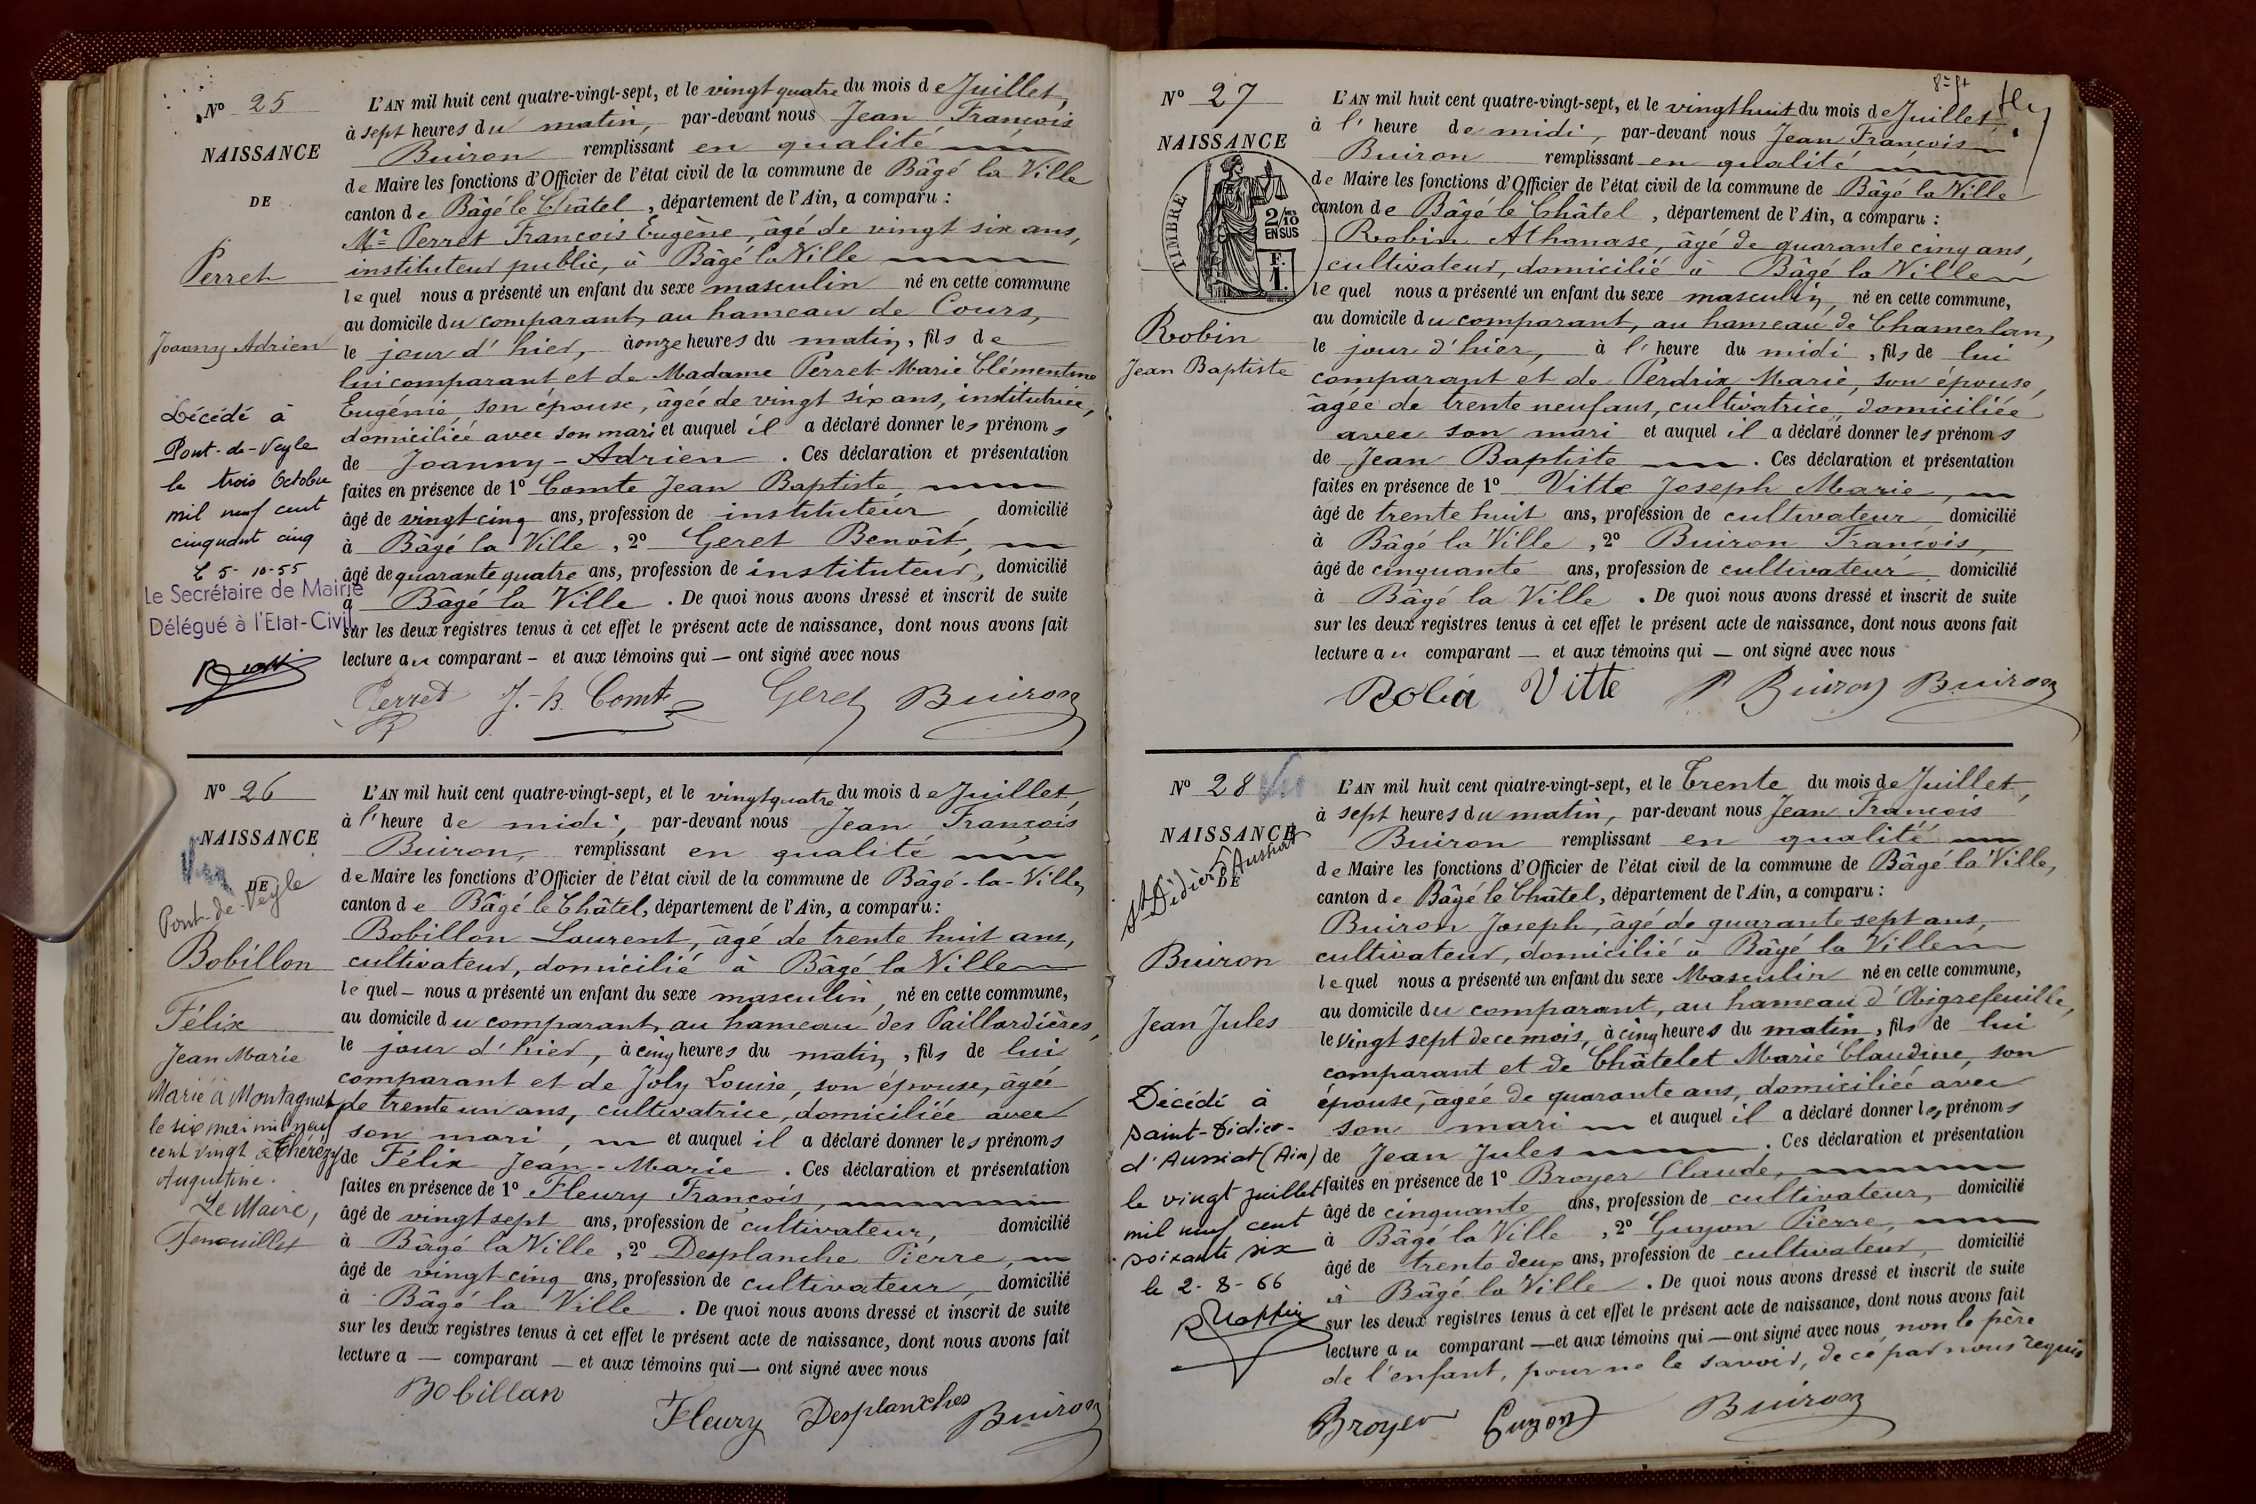 N° 25
NAISSANCE
DE
Perret
Joanny Adrien
Décédé à
Pont-de-Veyle
le trois Octobre
mil neuf cent
cinquante cinq
le 5-10-55
Le Secrétaire de Mairie
Délégué à l'Etat-Civil,
L'AN mil huit cent quatre-vingt-sept, et le vingt quatre du mois de Juillet,
à sept heures du matin, par-devant nous Jean François
Buiron remplissant en qualité
de Maire les fonctions d'Officier de l'état civil de la commune de Bâgé la Ville
canton de Bâgé le Châtel, département de l'Ain, a comparu :
Mr Perret François Eugène, âgé de vingt six ans,
instituteur public, à Bâgé la Ville
lequel nous a présenté un enfant du sexe masculin né en cette commune
au domicile du comparant, au hameau de Cours,
le jour d'hier, à onze heures du matin, fils de
lui comparant et de Madame Perret Marie Clémentine
Eugénie, son épouse, agée de vingt six ans, institutrice,
domiciliée avec son mari et auquel il a déclaré donner les prénoms
de Joanny-Adrien. Ces déclaration et présentation
faites en présence de 1° Comte Jean Baptiste,
âgé de vingt-cinq ans, profession de instituteur, domicilié
à Bâgé la Ville, 2° Geret Benoît,
âgé de quarante quatre ans, profession de instituteur, domicilié
à Bâgé la Ville. De quoi nous avons dressé et inscrit de suite
sur les deux registres tenus à cet effet le présent acte de naissance, dont nous avons fait
lecture au comparant - et aux témoins qui — ont signé avec nous
Perret J.-B. Comte Geret Buiron
N° 26
NAISSANCE
DE
Pont-de-Veyle
Bobillon
Félix
Jean Marie
Marié à Montagnat
le six mai mil neuf
cent vingt à Thérézy
Augustine.
Le Maire,
L'AN mil huit cent quatre-vingt-sept, et le vingt quatre du mois de Juillet,
à l'heure de midi, par-devant nous Jean François
Buiron, remplissant en qualité
de Maire les fonctions d'Officier de l'état civil de la commune de Bâgé-la-Ville,
canton de Bâgé le Châtel, département de l'Ain, a comparu :
Bobillon Laurent, âgé de trente huit ans,
cultivateur, domicilié à Bâgé la Ville
lequel — nous a présenté un enfant du sexe masculin, né en cette commune,
au domicile du comparant, au hameau des Paillardières,
le jour d'hier, à cinq heures du matin, fils de lui
comparant et de Joly Louise, son épouse, âgée
de trente un ans, cultivatrice, domiciliée avec
son mari, et auquel il a déclaré donner les prénoms
de Félix Jean-Marie. Ces déclaration et présentation
faites en présence de 1° Fleury François,
âgé de vingt sept ans, profession de cultivateur, domicilié
à Bâgé la Ville, 2° Desplanche Pierre,
âgé de vingt-cinq ans, profession de cultivateur, domicilié
à Bâgé la Ville. De quoi nous avons dressé et inscrit de suite
sur les deux registres tenus à cet effet le présent acte de naissance, dont nous avons fait
lecture a — comparant — et aux témoins qui — ont signé avec nous
Bobillan Fleury Desplanches Buiron
N° 27
NAISSANCE
TIMBRE
2/10
EN SUS
F.
1.
Robin
Jean Baptiste
L'AN mil huit cent quatre-vingt-sept, et le vingt huit du mois de Juillet,
à l'heure de midi, par-devant nous Jean François
Buiron remplissant en qualité
de Maire les fonctions d'Officier de l'état civil de la commune de Bâgé la Ville
canton de Bâgé le Châtel, département de l'Ain, a comparu :
Robin Athanase, âgé de quarante cinq ans,
cultivateur, domicilié à Bâgé la Ville
lequel nous a présenté un enfant du sexe masculin, né en cette commune,
au domicile du comparant, au hameau de Chamerlan,
le jour d'hier, à l'heure du midi, fils de lui
comparant et de Perdrix Marie, son épouse,
âgée de trente neuf ans, cultivatrice, domiciliée
avec son mari et auquel il a déclaré donner les prénoms
de Jean Baptiste. Ces déclaration et présentation
faites en présence de 1° Vitte Joseph Marie,
âgé de trente huit ans, profession de cultivateur domicilié
à Bâgé la Ville, 2° Buiron François,
âgé de cinquante ans, profession de cultivateur domicilié
à Bâgé la Ville. De quoi nous avons dressé et inscrit de suite
sur les deux registres tenus à cet effet le présent acte de naissance, dont nous avons fait
lecture au comparant — et aux témoins qui — ont signé avec nous
Robin Vitte Buiron Buiron
N° 28 Vu
NAISSANCE
DE
St Didier d'Aussiat
Buiron
Jean Jules
Décédé à
Saint-Didier-
d'Aussiat (Ain)
le vingt juillet
mil neuf cent
soixante six
le 2-8-66
L'AN mil huit cent quatre-vingt-sept, et le Trente du mois de Juillet,
à sept heures du matin, par-devant nous Jean François
Buiron remplissant en qualité
de Maire les fonctions d'Officier de l'état civil de la commune de Bâgé la Ville,
canton de Bâgé le Châtel, département de l'Ain, a comparu :
Buiron Joseph, âgé de quarante sept ans,
cultivateur, domicilié à Bâgé la Ville
lequel nous a présenté un enfant du sexe Masculin né en cette commune,
au domicile du comparant, au hameau d'Aigrefeuille,
le vingt sept de ce mois, à cinq heures du matin, fils de lui
comparant et de Châtelet Marie Claudine, son
épouse, âgée de quarante ans, domiciliée avec
son mari et auquel il a déclaré donner les prénoms
de Jean Jules. Ces déclaration et présentation
faites en présence de 1° Broyer Claude,
âgé de cinquante ans, profession de cultivateur, domicilié
à Bâgé la Ville, 2° Guyon Pierre,
âgé de trente deux ans, profession de cultivateur, domicilié
à Bâgé la Ville. De quoi nous avons dressé et inscrit de suite
sur les deux registres tenus à cet effet le présent acte de naissance, dont nous avons fait
lecture au comparant — et aux témoins qui — ont signé avec nous, non le père
de l'enfant, pour ne le savoir, de ce par nous requis
Broyer Guyon Buiron